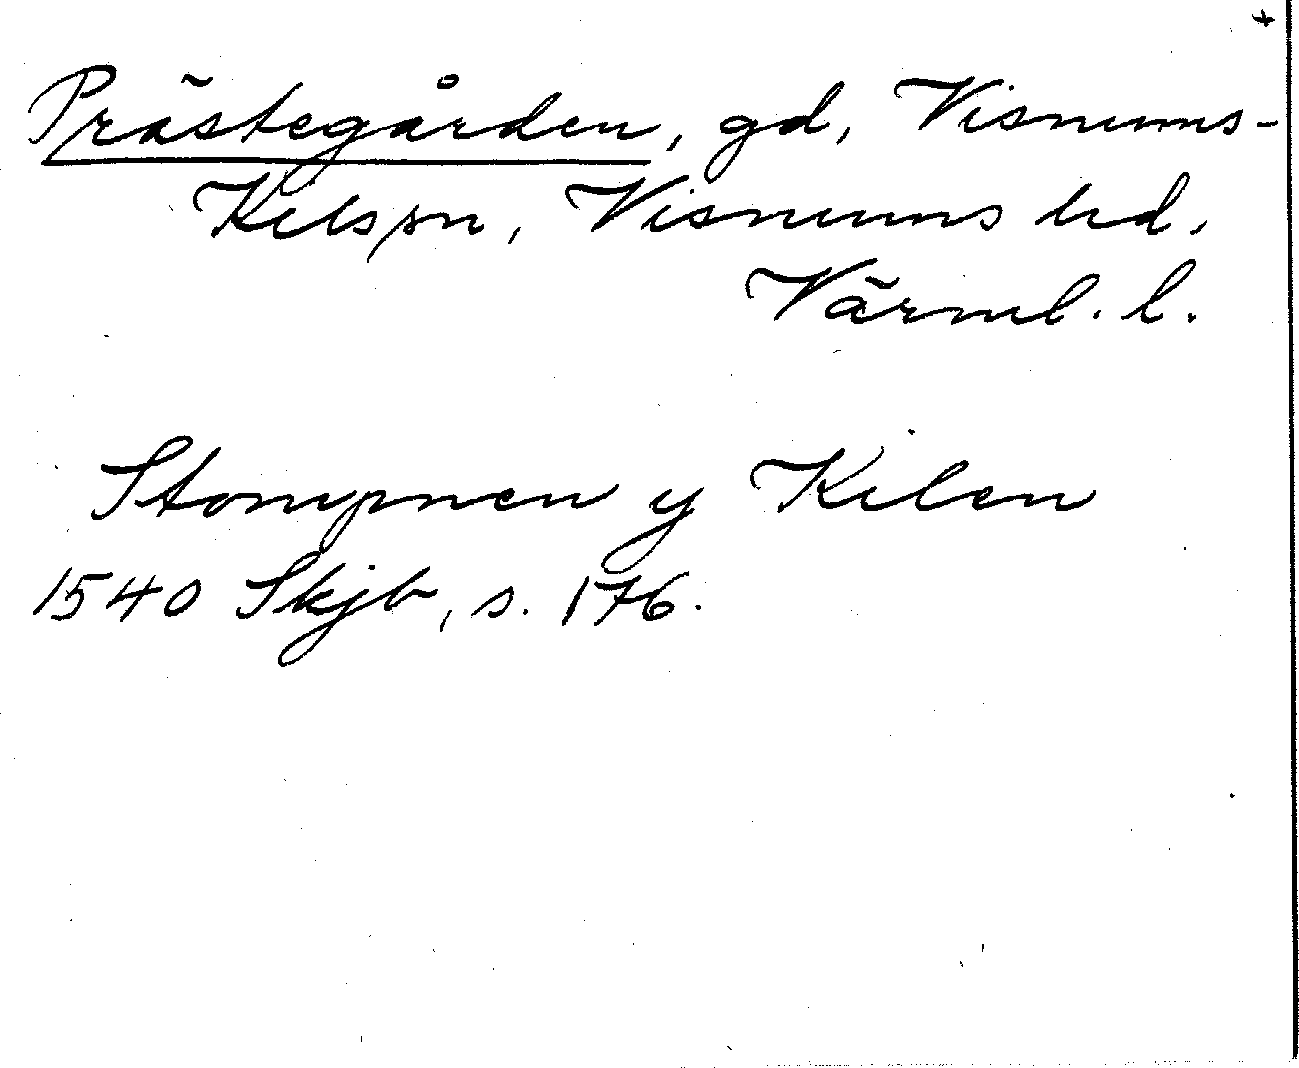 +
Prästegården, gd, Visnums-
Kils sn, Visnums hd,
Värml. l.
Stompnen y Kilen
1540 Skjb, s. 176.